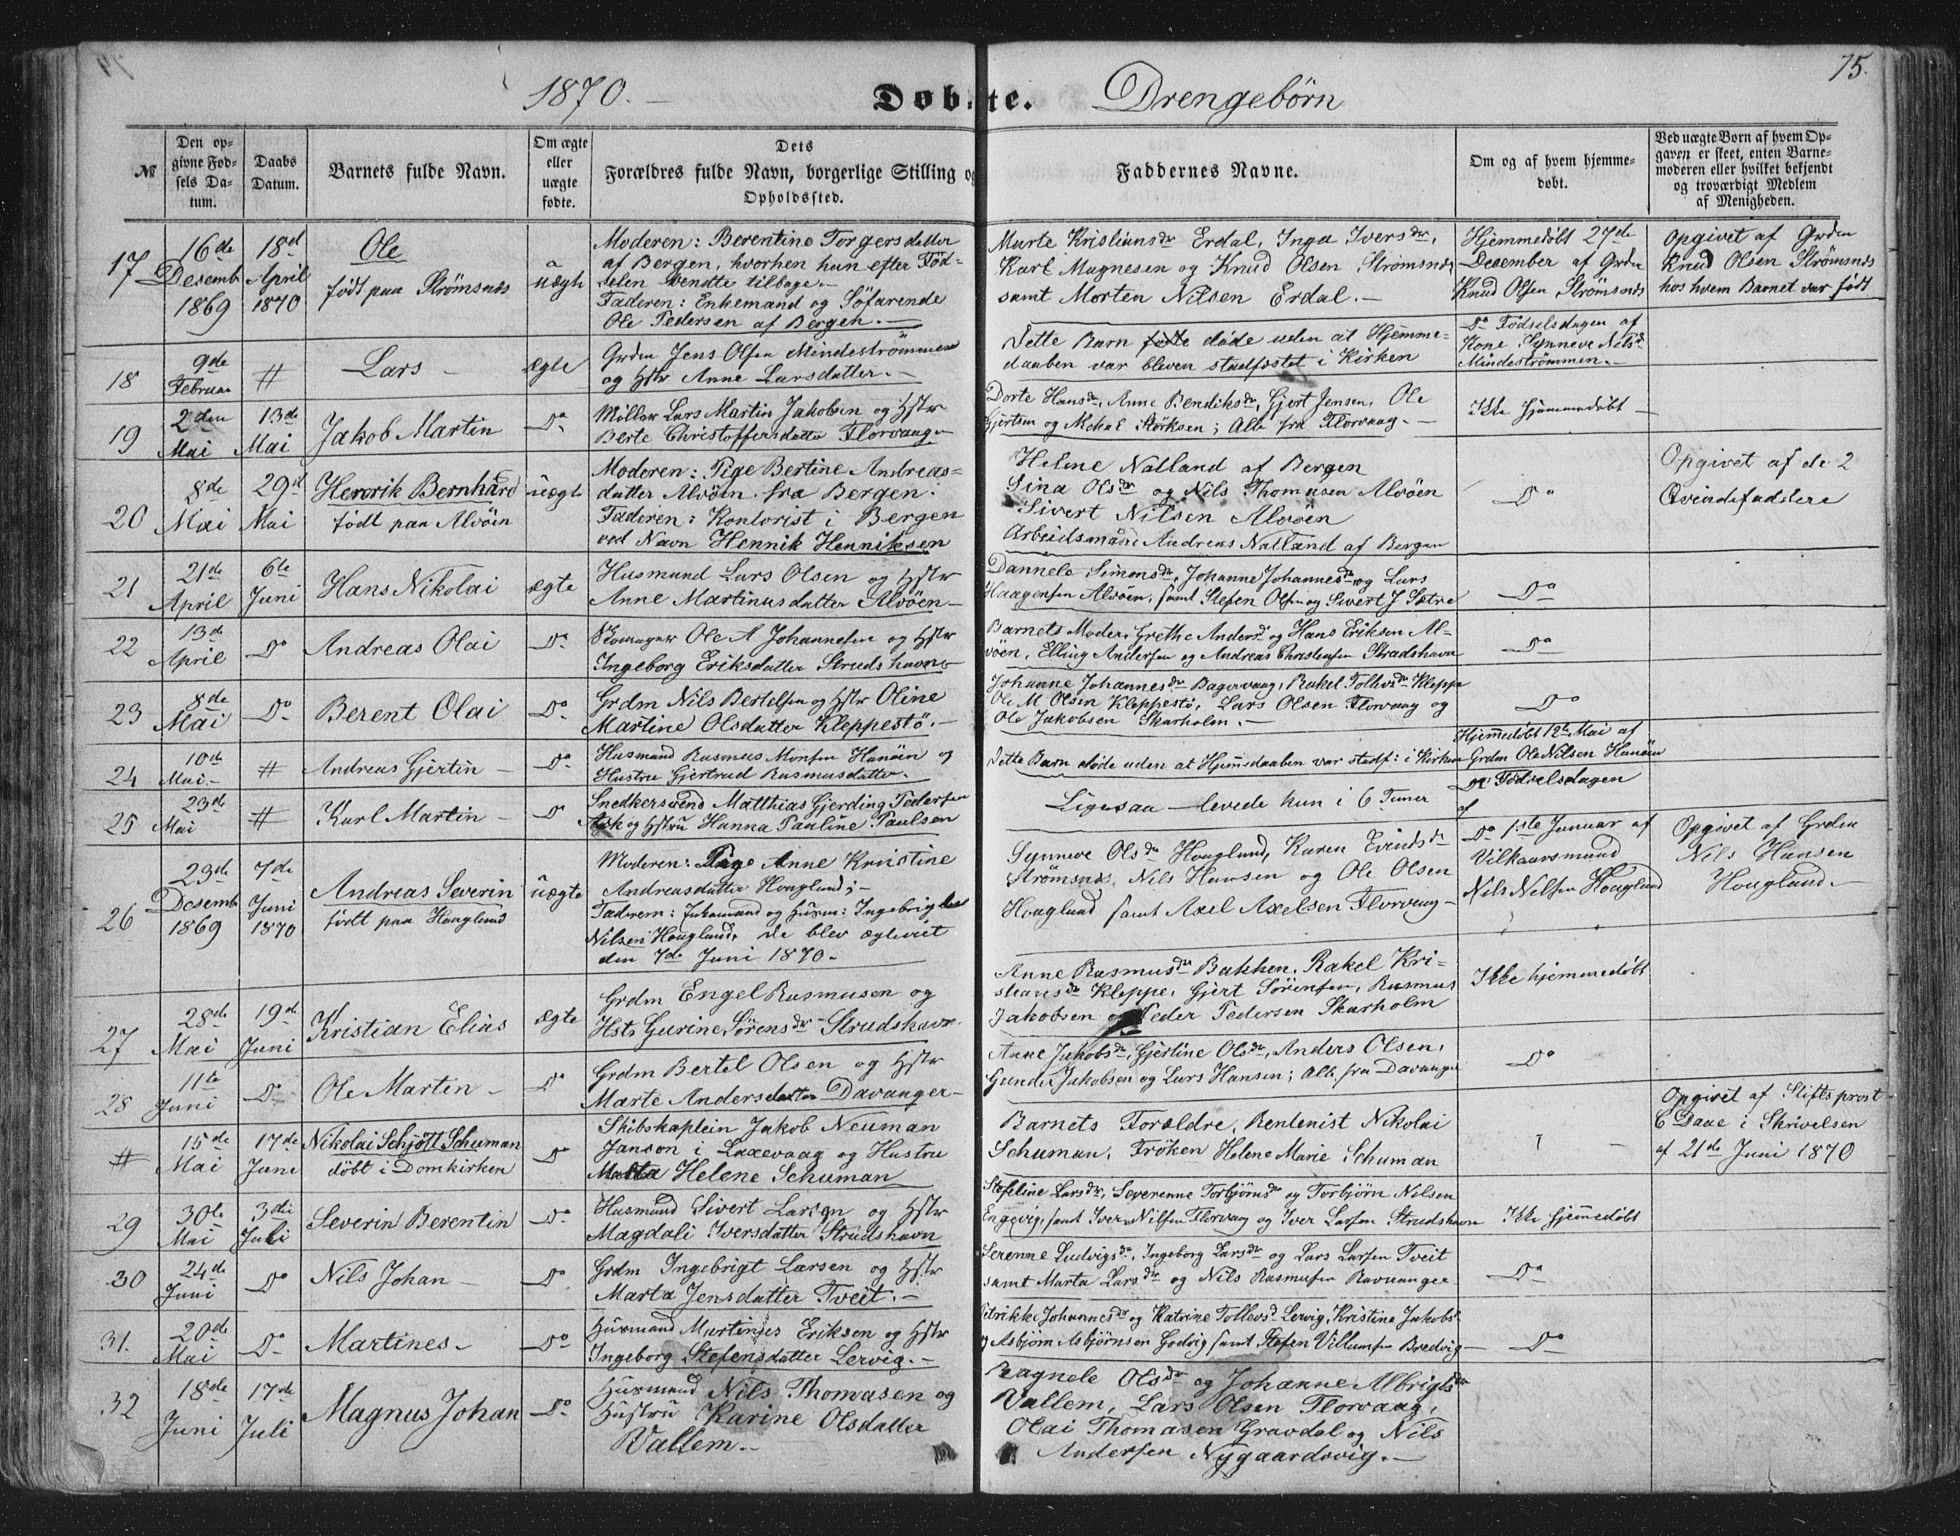 1870. — Døbte. Drengebørn 75.
№
Den opgivne Fødsels Datum.
Daabs Datum.
Barnets fulde Navn.
Om ægte eller uægte fødte.
Dets Forældres fulde Navn, borgerlige Stilling og Opholdssted.
Faddernes Navne.
Om og af hvem hjemmedøbt.
Ved uægte Børn af hvem Opgaven er skeet, enten Barnemoderen eller hvilket bekjendt og troværdigt Medlem af Menigheden.
17
16de Desemb 1869
18de April 1870
Ole
født paa Strømsnes
uægte
Moderen: Berentine Torgersdatter
af Bergen, hvorhen hun efter Fød-
selen vendte tilbage. —
Faderen: Enkemand og Søfarende
Ole Pedersen af Bergen. —
Marte Kristiansdr Erdal, Inga Iversdr,
Karl Magnesen og Knud Olsen Strømsnes
samt Morten Nilsen Erdal. —
Hjemmedøbt 27de
December af Grdm
Knud Olsen Strømsnes
Opgivet af Grdm
Knud Olsen Strømsnes
hos hvem Barnet var født
18
9de Februar
#
Lars —
ægte
Grdm Jens Olsen Mindeströmmen
og Hstr Anne Larsdatter. —
Dette Barn døde uden at Hjemme-
daaben var bleven stadfæstet i Kirken
Do Fødselsdagen af
Kone Synneve Nilsd
Mindeströmmen. —
19
2den Mai
13de Mai
Jakob Martin
Do
Müller Lars Martin Jakobsen og Hstr
Berte Christoffersdatter Florvaag —
Dorte Hansdr, Anne Bendiksdr, Gjert Jensen, Ole
Gjertsen og Mikal Størksen; Alle fra Florvaag. —
Ikke hjemmedøbt —
20
8de Mai
29de Mai
Henrik Bernhard
født paa Alvöen
uægte
Moderen: Pige Bertine Andreas-
datter Alvöen fra Bergen.
Faderen: Kontorist i Bergen
ved Navn Hennik Henniksen
Helene Natland af Bergen
Sina Olsdr og Nils Thomasen Alvöen
Sivert Nilsen Alvöen
Arbeidsmand Andreas Natland af Bergen
Do
Opgivet af de 2
Qvindefaddere
21
21de April
6te Juni
Hans Nikolai
ægte
Husmand Lars Olsen og Hstr
Anne Martinusdatter Alvöen —
Dannele Simonsdr, Johanne Johannesdr og Lars
Haagensen Alvöen, samt Stefen Olsen og Sivert J Sætre
Do
22
13de April
Do
Andreas Olai
Do
Skomager Ole A Johannesen og Hstr
Ingeborg Eriksdatter Strudshavn —
Barnets Moder, Grethe Andersd og Hans Eriksen Al-
vöen, Elling Andersen og Andreas Christensen Strudshavn
Do
23
8de Mai
Do
Berent Olai
Do
Grdm Nils Bertelsen og Hstr Oline
Martine Olsdatter Kleppestö. —
Johanne Johannesdr Bagervaag, Rakel Tollevsdr Kleppe
Ole M. Olsen Kleppestö, Lars Olsen Florvaag og
Ole Jakobsen Skarholm. —
Do
24
10de Mai —
#
Andreas Gjertin —
Do
Husmand Rasmus Monsen Hanöen og
Hustru Gjertrud Rasmusdatter. —
Dette Barn døde uden at Hjemmedaaben var stadf: i Kirken
Hjemmedøbt 12te Mai af
Grdm Ole Nilsen Hanöen
25
23de Mai
#
Karl Martin —
Do
Snedkersvend Matthias Gjerding Pedersen
Ask og Hstru Hanna Pauline Paulsen
Ligesaa — levede kun i 6 Timer
Do Fødselsdagen
af
26
23de Desemb 1869
7de Juni 1870
Andreas Severin
født paa Hougland
uægte
Moderen: Pige Anne Kristine
Andreasdatter Hougland; —
Faderen: Ingebrigt
Nilsen Hougland, de blev ægteviet
den 7de Juni 1870. —
Synneve Olsdr Hougland, Karen Evindsdr
Strømsnes, Nils Hansen og Ole Olsen
Hougland samt Axel Axelsen Florvaag —
Do 1ste Januar af
Vilkaarsmand
Nils Nilsen Hougland
Opgivet af Grdm
Nils Hansen
Hougland. —
27
28de Mai
19de Juni
Kristian Elias
ægte
Grdm Engel Rasmusen og
Hstr Gurine Sørensdr Strudshavn.
Anne Rasmusdr Bakken, Rakel Kri-
stiansdr Kleppe, Gjert Sørensen, Rasmus
Jakobsen og Peder Pedersen Skarholm
Ikke hjemmedøbt
28
11te Juni
Do
Ole Martin —
Do
Grdm Bertel Olsen og Hstr
Marte Andersdatter Davanger —
Anne Jakobsdr, Gjertine Olsdr, Anders Olsen,
Gunder Jakobsen og Lars Hansen; Alle fra Davanger
Do
#
15de Mai
17de Juni
Nikolai Schjött Schuman
döbt i Domkirken
Do
Skibskaptein Jakob Neuman
Janson i Laxevaag og Hustru
Marta Helene Schuman
Barnets Forældre, Rentenist Nikolai
Schuman, Frøken Helene Marie Schuman
?
Opgivet af Stiftsprost
C Daae i Skrivelsen
af 21de Juni 1870
29
30te Mai
3die Juli
Severin Berentin
Do
Husmand Sivert Larsen og Hstr
Magdali Iversdatter Strudshavn
Stefeline Larsdr, Severenne Torbjörnsdr og Torbjörn Nilsen
Engevig, samt Iver Nilsen Florvaag og Iver Larsen Strudshavn
Ikke hjemmedøbt
30
24de Juni
Do
Nils Johan —
Do
Grdm Ingebrigt Larsen og Hstr
Marta Jensdatter Tveit. —
Serenne Ludvigsdr, Ingeborg Larsdr og Lars Larsen Tveit
samt Marta Larsdr og Nils Rasmusen Ravnanger
Do
31.
20de Mai
Do
Martines —
Do
Husmand Martinus Eriksen og Hstr
Ingeborg Stefensdatter Lervig. —
Petrikke Johannesdr og Katrine Tollevsd Lervig, Kristine Jakobsd
og Asbjörn Asbjörnsen Godvig samt Stefen Villumsen Bredvig —
Do
32
18de Juni
17de Juli
Magnus Johan
Do
Husmand Nils Thomasen og
Hustru Karine Olsdatter
Vallem. —
Ragnele Olsdr og Johanne Albrigtsdr
Vallem, Lars Olsen Florvaag,
Olai Thomasen Gravdal og Nils
Andersen Nygaardsvig. —